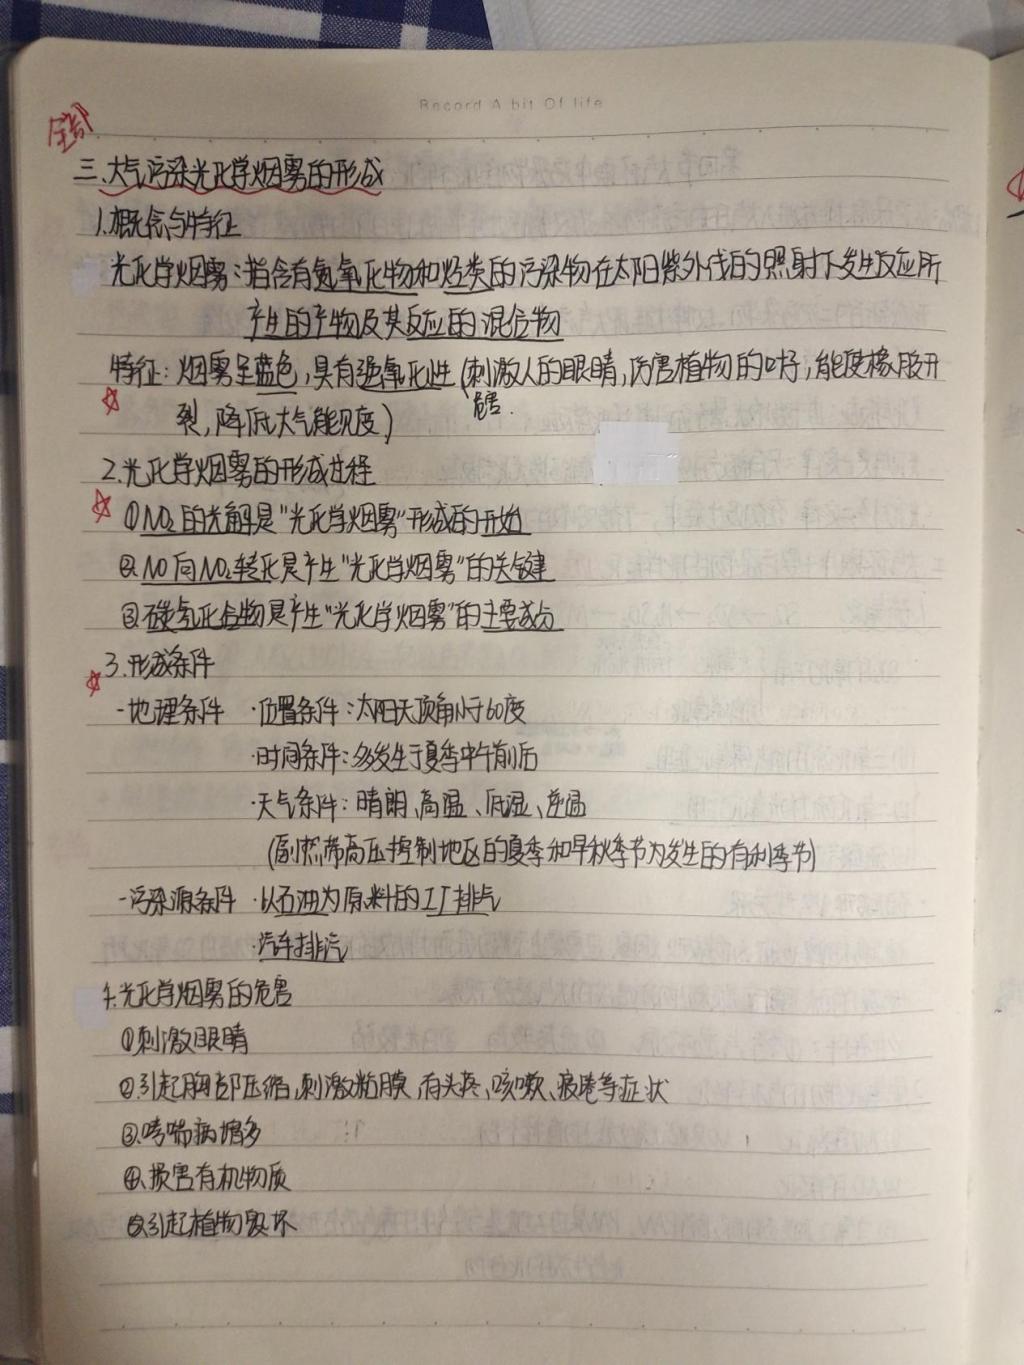 Record A bit Of life
全部
三.大气污染光化学烟雾的形成
1.概念与特征
光化学烟雾:指含有氮氧化物和烃类的污染物在太阳紫外线的照射下发生反应所
产生的产物及其反应的混合物
特征:烟雾呈蓝色,具有强氧化性(刺激人的眼睛,伤害植物的叶子,能使橡胶开
危害.
裂,降低大气能见度)
2.光化学烟雾的形成过程
①NO₂的光解是"光化学烟雾"形成的开始
②NO向NO₂转化是产生"光化学烟雾"的关键
③碳氢化合物是产生"光化学烟雾"的主要成分
3.形成条件
-地理条件 ·位置条件:太阳天顶角小于60度
·时间条件:多发生于夏季中午前后
·天气条件:晴朗、高温、低湿、逆温
(副热带高压控制地区的夏季和早秋季节为发生的有利季节)
-污染源条件 ·以石油为原料的工厂排气
·汽车排汽
4.光化学烟雾的危害
①刺激眼睛
②引起胸部压缩,刺激粘膜,有头疼、咳嗽、疲惫等症状
③哮喘病增多
④损害有机物质
⑤引起植物毁坏